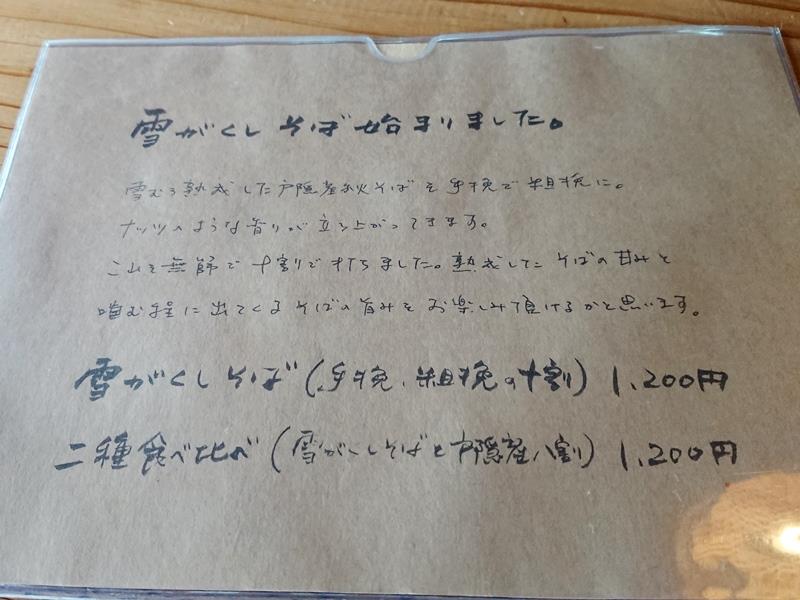 雪がくしそば始まりました。
雪むろ熟成した戸隠産秋そばを手挽で粗挽に。
ナッツのような香りが立ち上がってきます。
これを無篩で十割で打ちました。熟成したそばの甘みと
噛む程に出てくるそばの旨みをお楽しみ頂けるかと思います。
雪がくしそば(手挽、粗挽の十割) 1,200円
二種食べ比べ(雪がくしそばと戸隠産八割) 1,200円